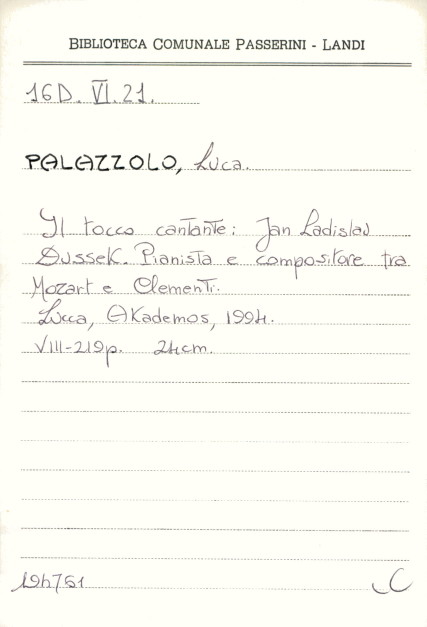 BIBLIOTECA COMUNALE PASSERINI - LANDI
16D. VI.21.
PALAZZOLO, Luca.
Il tocco cantante: Jan Ladislav
Dussek. Pianista e compositore tra
Mozart e Clementi.
Lucca, Akademos, 1994.
VIII-219p. 24cm.
194751
C